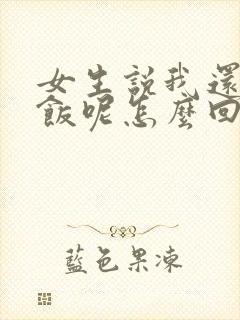 女生説我還
飯呢怎麼回
藍色果凍